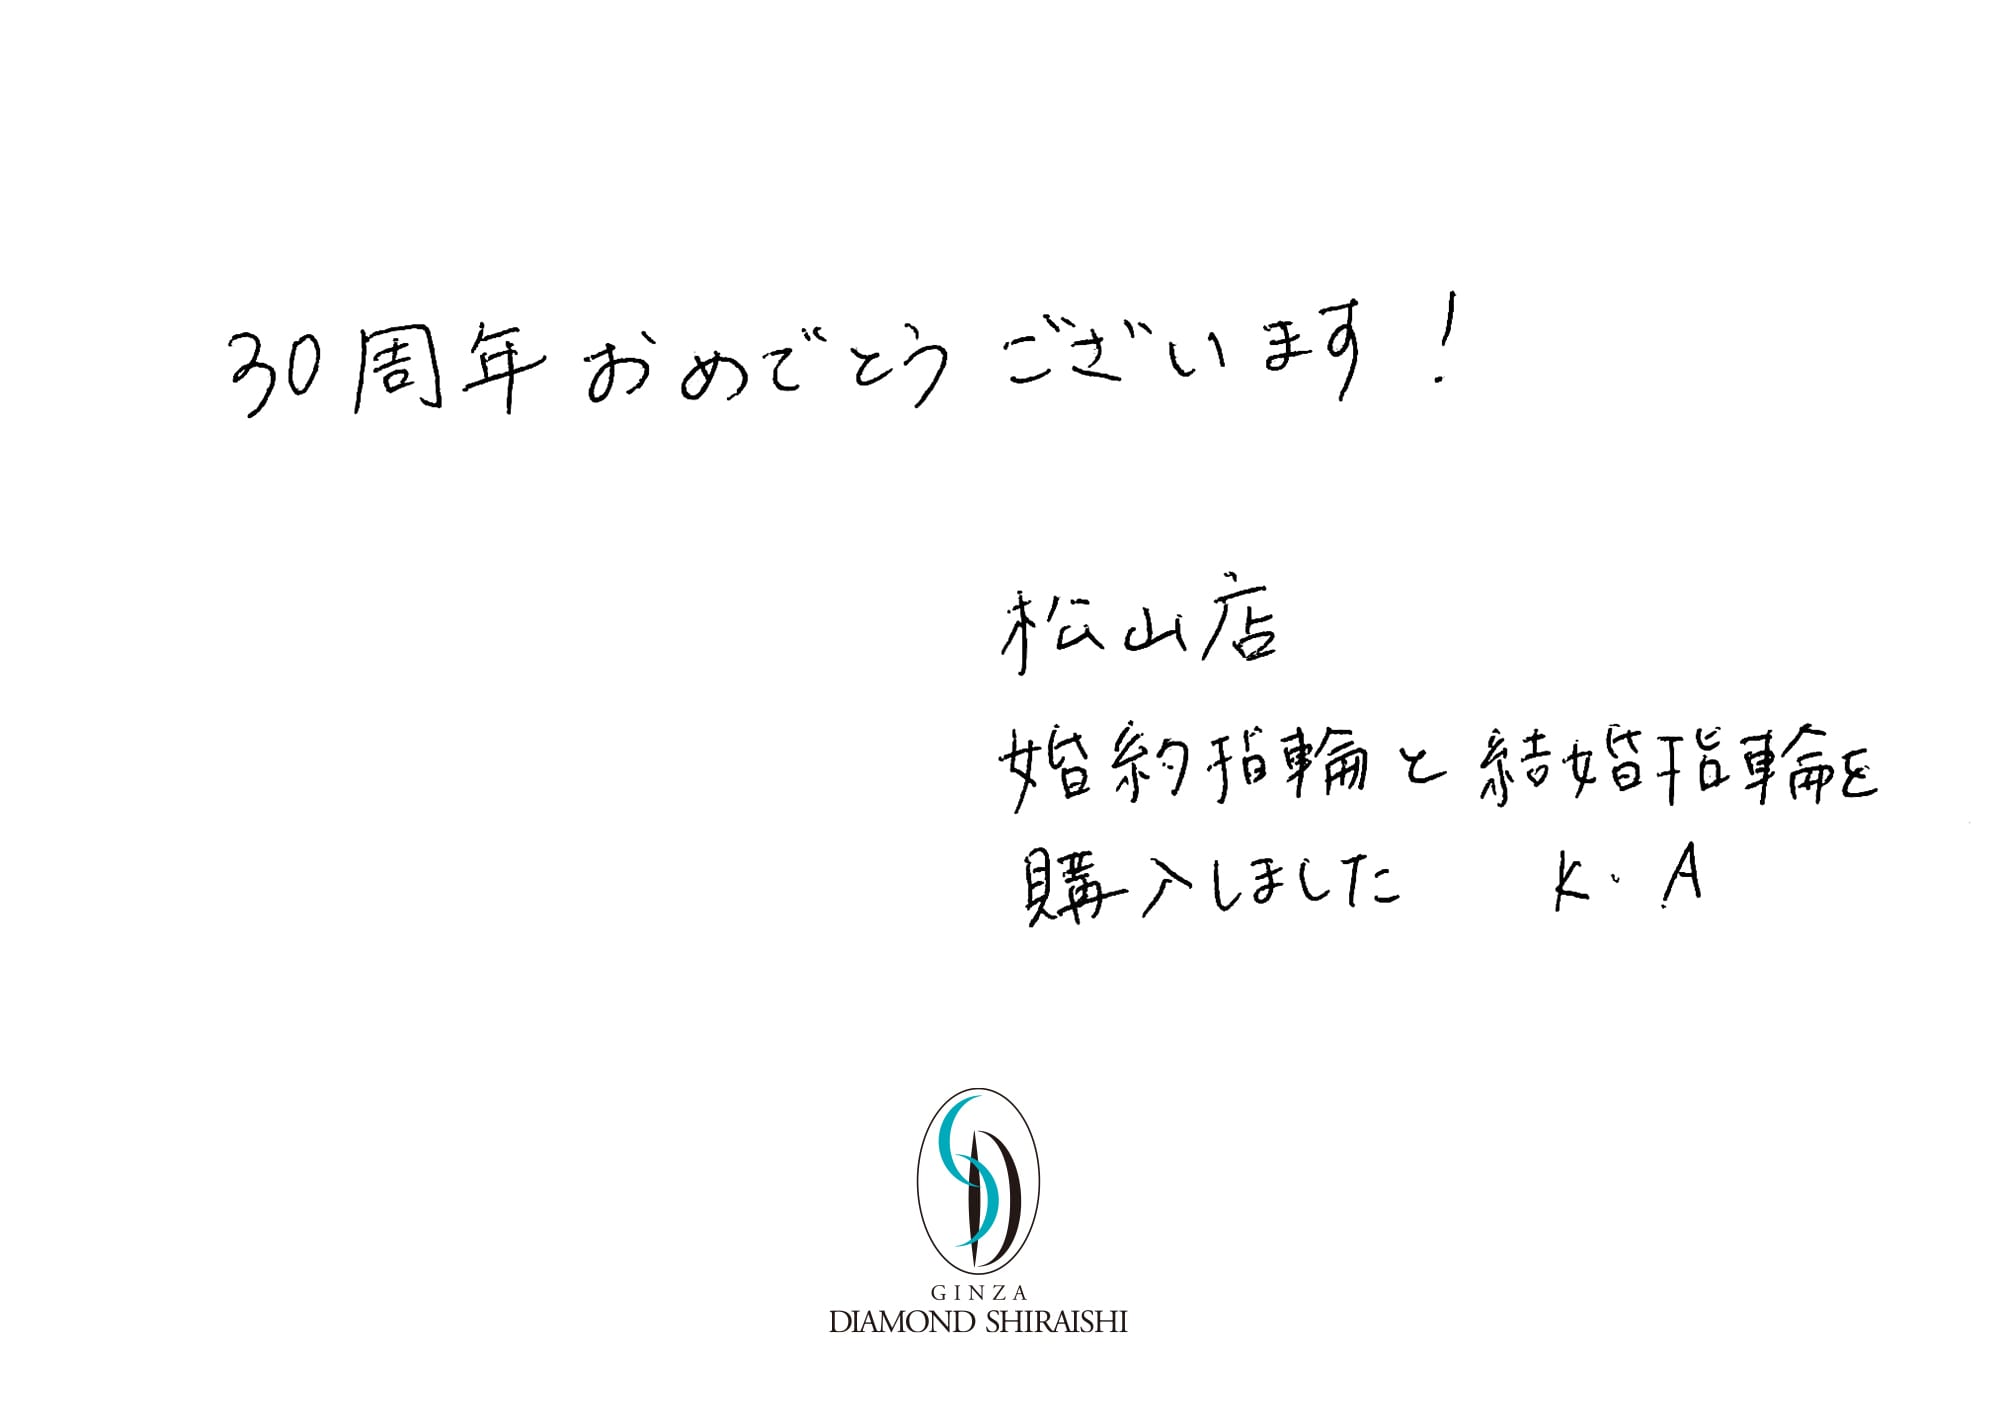 30周年おめでとうございます!
松山店
婚約指輪と結婚指輪を
購入しました K.A
GINZA
DIAMOND SHIRAISHI